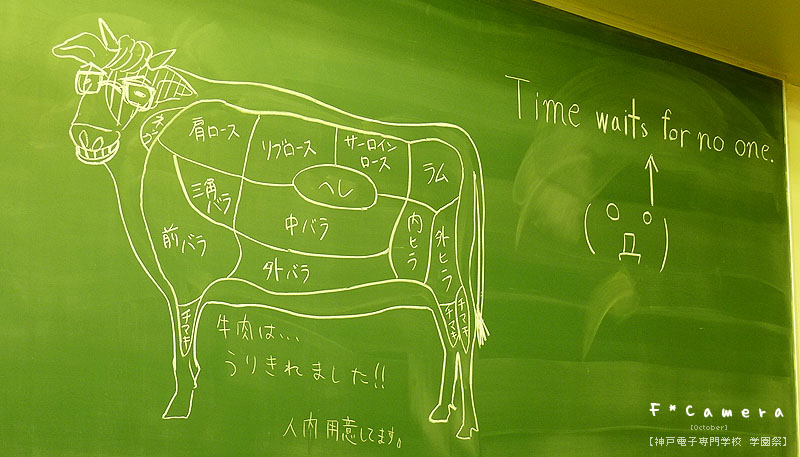 Time waits for no one.
ネック
肩ロース
リブロース
サーロイン
ロース
ラム
ヘレ
三角
バラ
中バラ
前バラ
外バラ
内ヒラ
外ヒラ
チマキ
チマキ
チマキ
牛肉は…
うりきれました!!
人肉用意してます。
F*Camera
[October]
【神戸電子専門学校 学園祭】